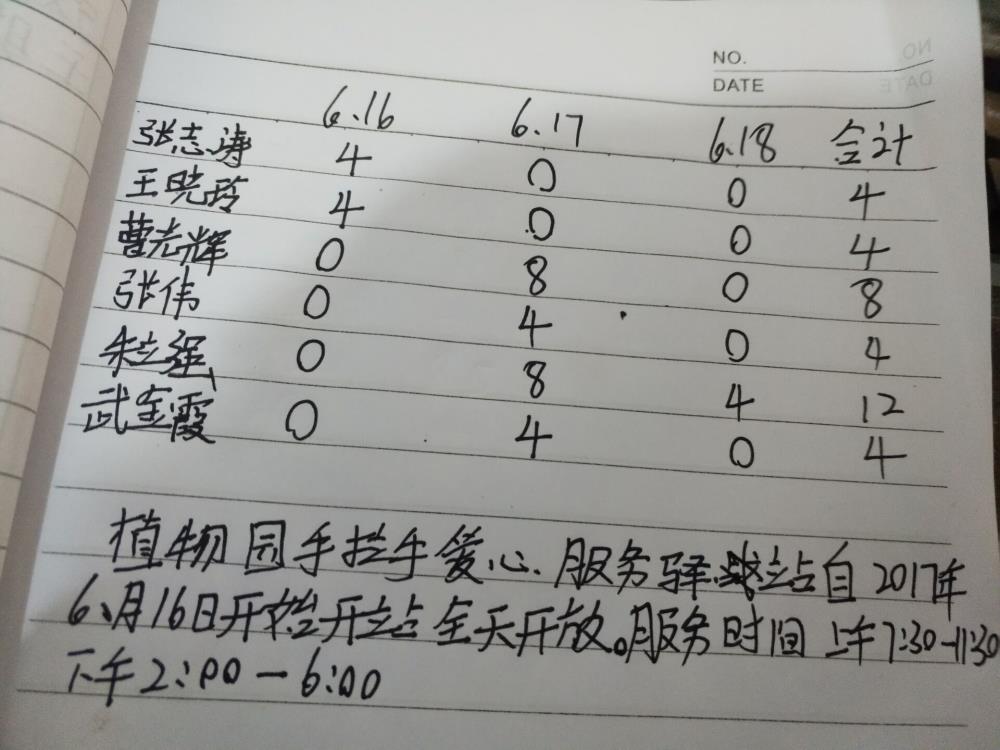 NO.
DATE
6.16 6.17 6.18 合计
张志涛 4 0 0 4
王晓玲 4 0 0 4
曹志辉 0 8 0 8
张伟 0 4 0 4
朱立强 0 8 4 12
武金霞 0 4 0 4
植物园手拉手爱心服务驿站自2017年
6月16日开始开站全天开放。服务时间 上午7:30-11:30
下午2:00-6:00